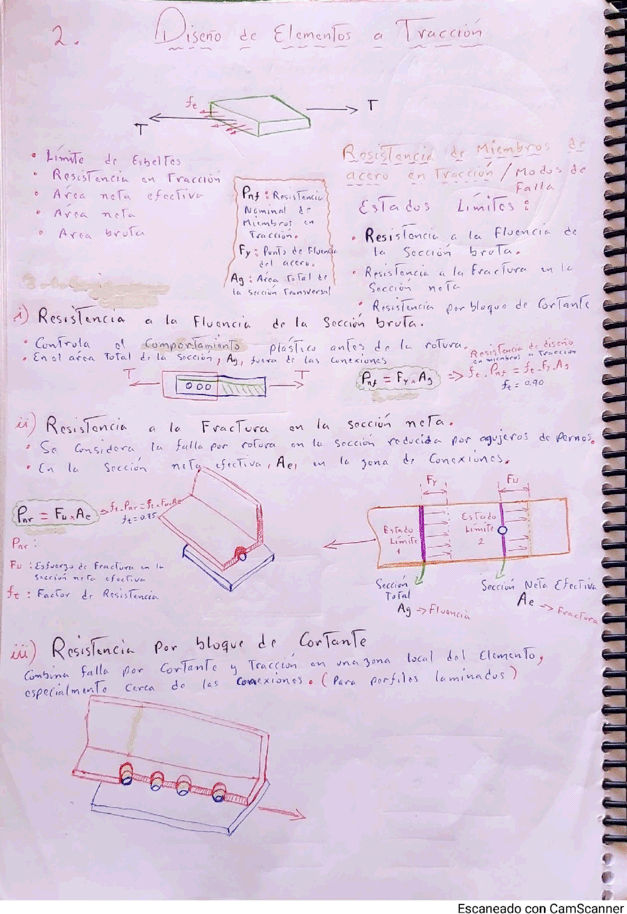 2. Diseño de Elementos a Tracción
ft
T
T
• Límite de Esbeltes
• Resistencia en Tracción
• Area neta efectiva
• Area neta
• Area bruta
Pnf: Resistencia
Nominal de
Miembros en
Tracción.
Fy: Punto de Fluencia
del acero.
Ag: Área Total de
la sección Transversal
Resistencia de Miembros de
acero en Tracción / Modos de
Falla
Estados Límites:
• Resistencia a la Fluencia de
la Sección bruta.
• Resistencia a la Fractura en la
Sección neta
• Resistencia por bloque de Cortante
i) Resistencia a la Fluencia de la Sección bruta.
• Controla el comportamiento plástico antes de la rotura.
• En el área Total de la sección, Ag, fuera de las conexiones
T
T
Pnf = Fy x Ag
Resistencia de diseño
en miembros a Tracción
=> ft.Pnf = ft.Fy.Ag
ft = 0.90
ii) Resistencia a la Fractura en la sección neta.
• Se considera la falla por rotura en la sección reducida por agujeros de pernos.
• En la Sección neta efectiva, Ae, en la zona de Conexiones.
Pnr = Fu x Ae
ft.Pnr = ft.Fu.Ae
ft = 0.75
Pnr:
Fu: Esfuerzo de Fractura en la
sección neta efectiva
ft: Factor de Resistencia
Fy
Fu
Estado
Límite
1
Estado
Límite
2
Sección
Total
Ag → Fluencia
Sección Neta Efectiva
Ae → Fractura
iii) Resistencia por bloque de Cortante
Combina falla por Cortante y Tracción en una zona local del Elemento,
especialmente cerca de las conexiones. (Para perfiles laminados)
Escaneado con CamScanner